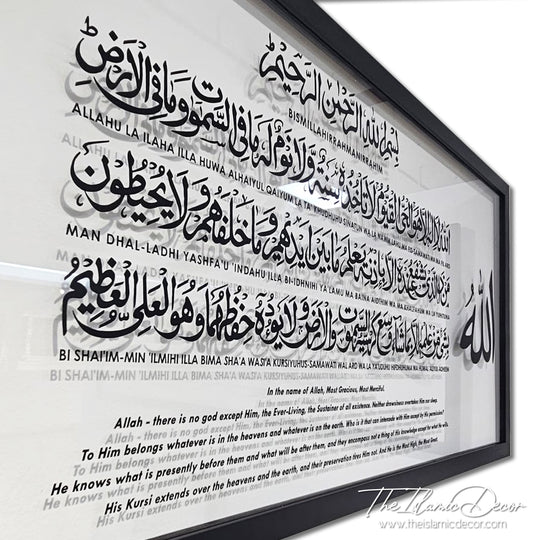 بسم الله الرحمن الرحيم
BISMILLAHIRRAHMANIRRAHIM
الله لا إله إلا هو الحي القيوم لا تأخذه سنة ولا نوم له ما في السموت وما في الأرض
ALLAHU LA ILAHA ILLA HUWA ALHAIYUL QAIYUM LA TA' KHUDHUHU SINATUN WA LA NAWM, LAHU MA FIS-SAMAWATI WA MA FIL ARD
من ذا الذي يشفع عنده إلا بإذنه يعلم ما بين أيديهم وما خلفهم ولا يحيطون
MAN DHAL-LADHI YASHFA'U 'INDAHU ILLA BI-IDHNIHI YA LAMU MA BAINA AIDIHIM WA MA KHALFAHUM WA LA YUHITUNA
بشيء من علمه إلا بما شاء وسع كرسيه السموت والأرض ولا يؤده حفظهما وهو العلي العظيم
BI SHAI'IM-MIN 'ILMIHI ILLA BIMA SHA'A WASI'A KURSIYUHUS-SAMAWATI WAL ARD WA LA YA'UDUHU HIFDHUHUMA WA HUWAL ALIYUL ADHEEM
الله
In the name of Allah, Most Gracious, Most Merciful.
Allah - there is no god except Him, the Ever-Living, the Sustainer of all existence. Neither drowsiness overtakes Him nor sleep.
To Him belongs whatever is in the heavens and whatever is on the earth. Who is it that can intercede with Him except by His permission?
He knows what is presently before them and what will be after them, and they encompass not a thing of His knowledge except for what He wills.
His Kursi extends over the heavens and the earth, and their preservation tires Him not. And He is the Most High, the Most Great.
The Islamic Decor
www.theislamicdecor.com